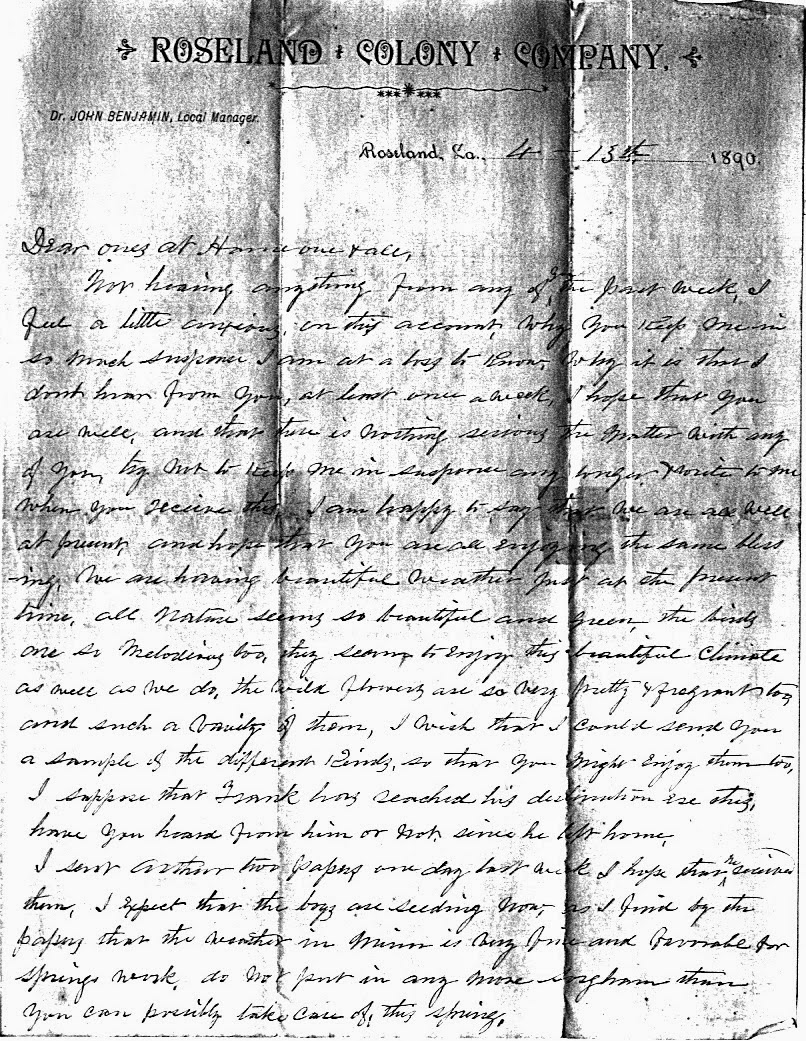 ROSELAND COLONY COMPANY.
Dr. JOHN BENJAMIN, Local Manager.
Roseland, La., 4 - 13th 1890.
Dear ones at Home one & all,
Not hearing anything from any of the past week, I
feel a little anxious, on this account, why you keep me in
so much suspense I am at a loss to know, why it is that I
dont hear from you, at least once a week, I hope that you
are well, and that there is nothing serious the matter with any
of you, try not to keep me in suspense any longer & write to me
when you receive this. I am happy to say that we are all well
at present, and hope that you are all enjoying the same bless
-ing, We are having beautiful weather just at the present
time, all Nature seems so beautiful and green, the birds
are so Melodious too, they seem to enjoy this beautiful Climate
as well as we do, the wild flowers are so very pretty & fragrant too,
and such a variety of them, I wish that I could send you
a sample of the different Kinds, so that you might enjoy them too,
I suppose that Frank has reached his destination ere this,
have you heard from him or not, since he left home,
I sent Arthur two papers one day last week I hope that he received
them, I expect that the boys are seeding now, as I find by the
papers that the weather in Minn is very fine and favorable for
springs work, do not put in any more than
you can possibly take care of, this spring,